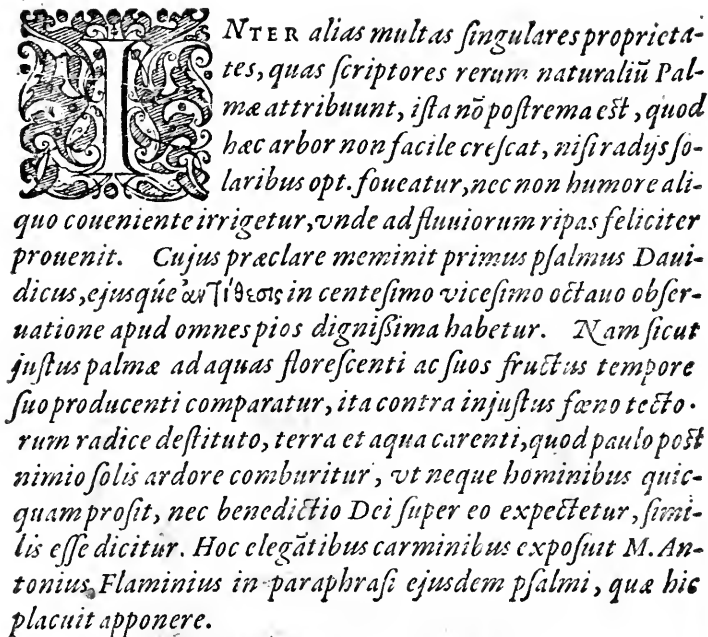 INTER alias multas ſingulares proprieta-
tes, quas ſcriptores rerum naturaliū Pal-
mæ attribuunt, iſta nō poſtrema eſt, quod
hæc arbor non facile creſcat, niſi radijs ſo-
laribus opt. foueatur, nec non humore ali-
quo coueniente irrigetur, vnde ad fluuiorum ripas feliciter
prouenit. Cujus præclare meminit primus pſalmus Daui-
dicus, ejusq́ue ἀντίθεσις in centeſimo viceſimo octauo obſer-
uatione apud omnes pios digniſsima habetur. Nam ſicut
juſtus palmæ ad aquas floreſcenti ac ſuos fructus tempore
ſuo producenti comparatur, ita contra injuſtus fœno tecto-
rum radice deſtituto, terra et aqua carenti, quod paulo poſt
nimio ſolis ardore comburitur, vt neque hominibus quic-
quam proſit, nec benedictio Dei ſuper eo expectetur, ſimi-
lis eſſe dicitur. Hoc elegātibus carminibus expoſuit M. An-
tonius Flaminius in paraphraſi ejusdem pſalmi, quæ hic
placuit apponere.